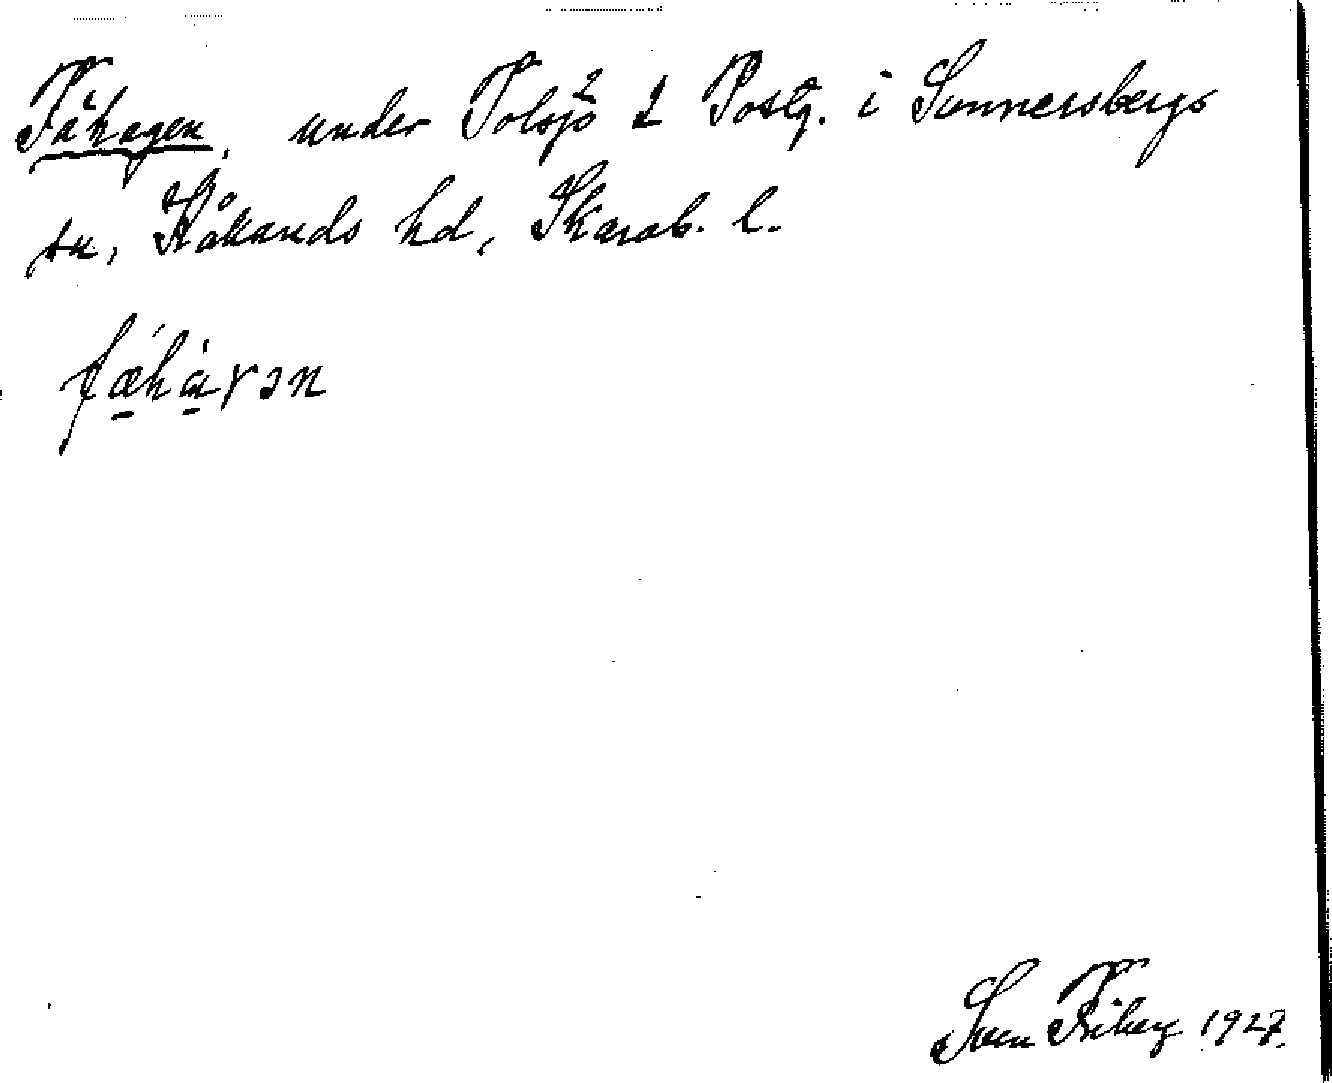 Fähagen, under Tolsjö 2 Postg. i Sunnersbergs
sn, Kållands hd, Skarab. l.
fæhaɤən
Sven Fiberg 1927.